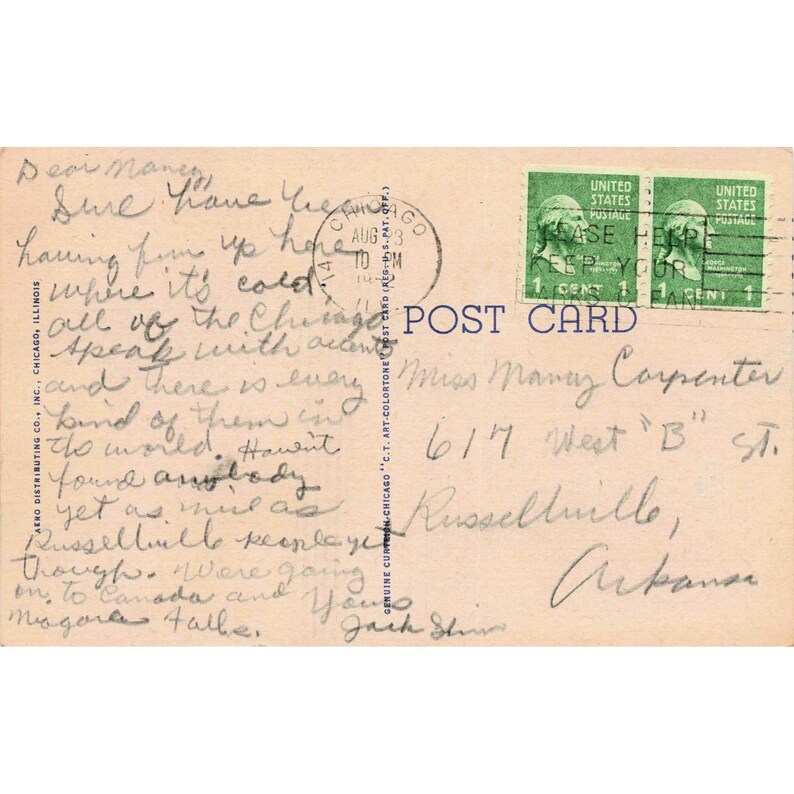 Dear Nancy,
Sure have been
having fun up here
where it's cold,
all of the Chicago
speak with accents
and there is every
kind of them in
the world. Haven't
found anybody
yet as nice as
Russellville people yet
though. We're going
on to Canada and
Niagara Falls.
Yours
Jack
AERO DISTRIBUTING CO., INC., CHICAGO, ILLINOIS
GENUINE CURTEICH-CHICAGO "C.T. ART-COLORTONE" POST CARD (REG. U.S. PAT. OFF.)
CHICAGO
AUG 3
10 PM
UNITED
STATES
POSTAGE
GEORGE
WASHINGTON
1 CENT 1
UNITED
STATES
POSTAGE
GEORGE
WASHINGTON
1 CENT 1
PLEASE HELP
KEEP YOUR
PARKS CLEAN
POST CARD
Miss Nancy Carpenter
617 West "B" St.
Russellville,
Arkansas